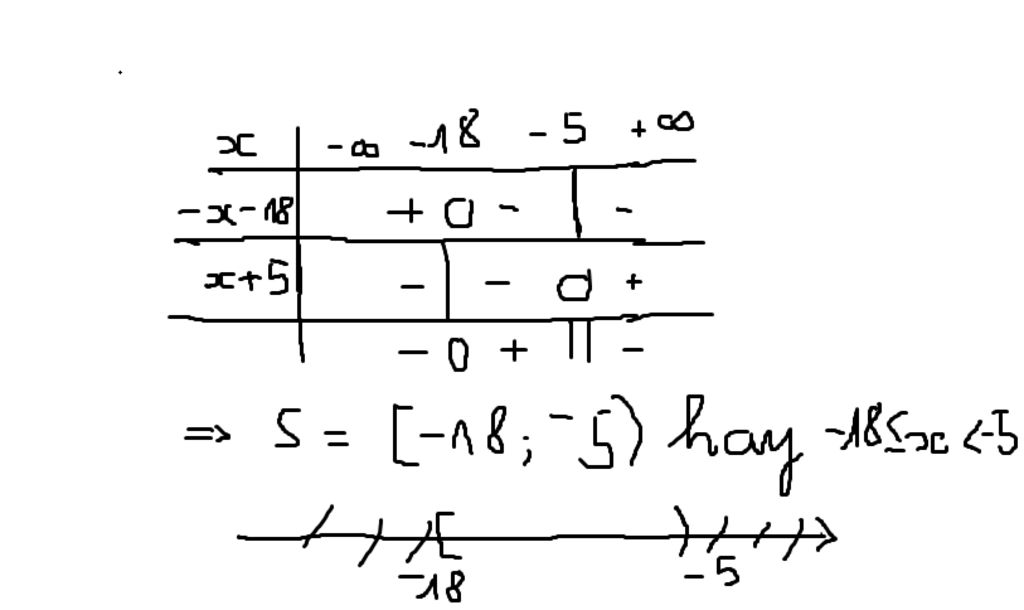 x -∞ -18 -5 +∞
-x-18 + 0 - | -
x+5 - | - 0 +
- 0 + || -
=> S = [-18; -5) hay -18≤x<-5
[ )
-18 -5